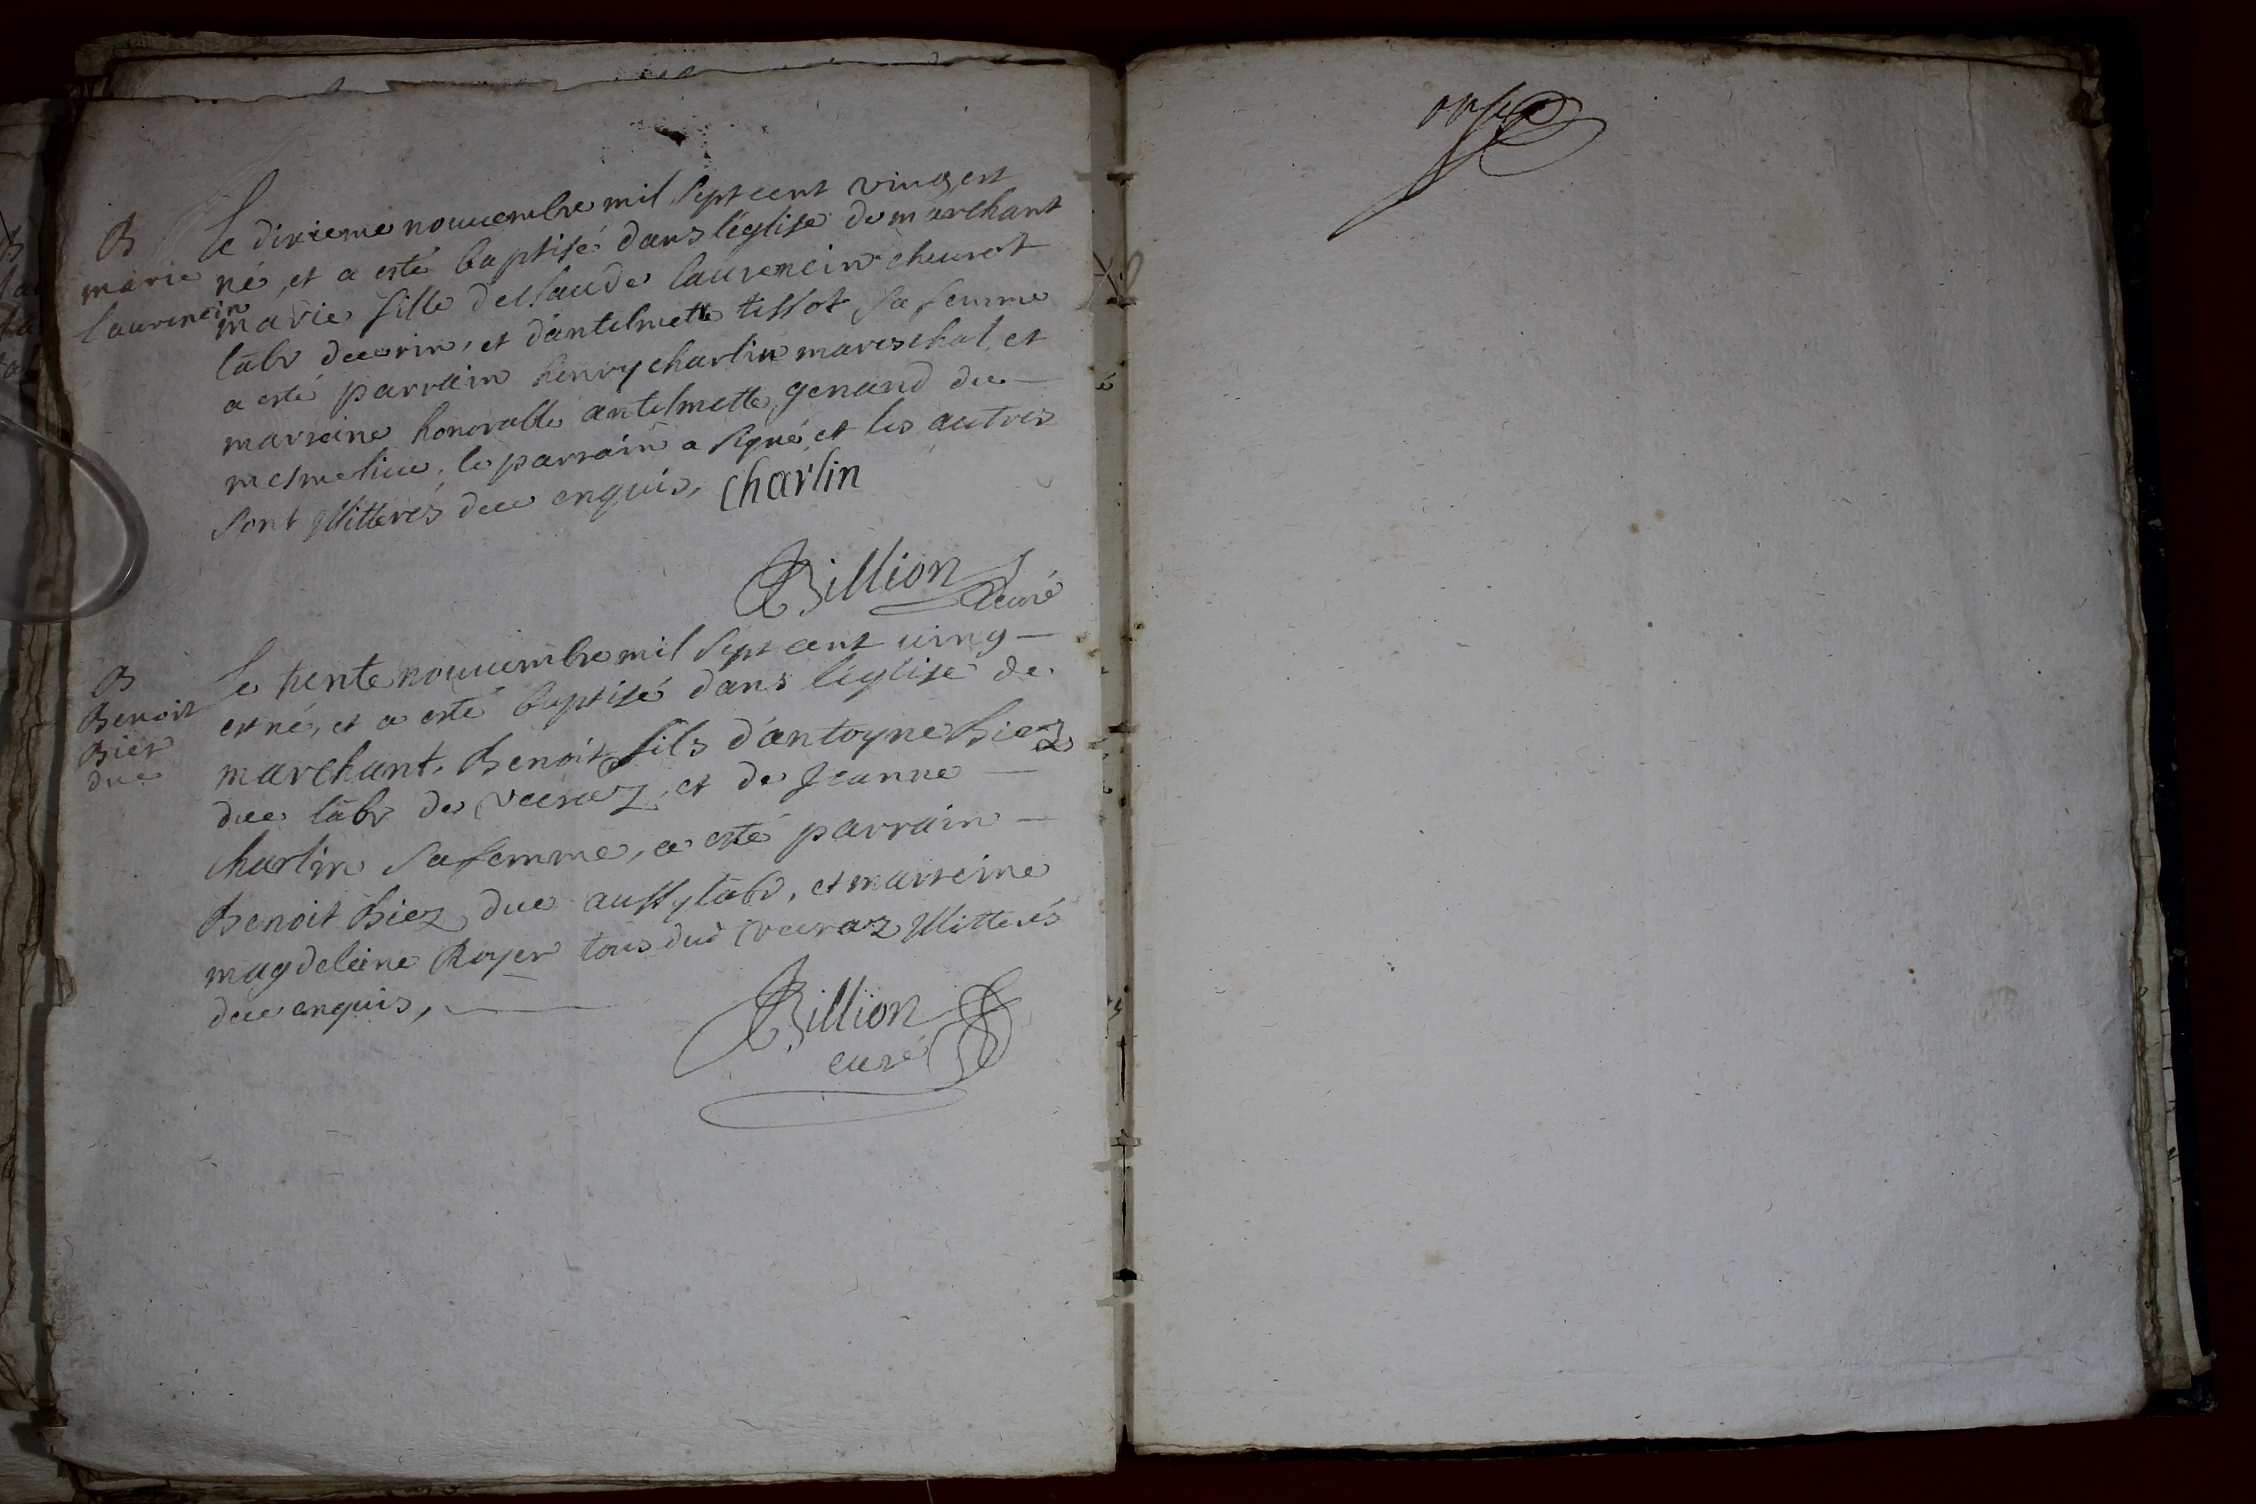 B
marie
laurencin
le dixieme nouuembre mil sept cent vingt est
né, et a esté baptisé dans léglise de marchant
marie fille de Claude laurencin cheurot
labr decorin, et dantelmette tissot sa femme
a esté parrain henry charlin mareschal, et
marraine honorable antelmette genand du
mesme lieu, le parrain a signé, et les autres
sont illitterés deue enquis, charlin
Billion
curé
B
Benoit
Biez
duc
Le trente nouuembre mil sept cent uing
est né, et a esté baptisé dans léglise de
marchant, Benoit fils dántoyne Biez
duc labr de veeraz, et de Jeanne
charlin sa femme, a esté parrain
Benoit Biez duc aussy labr, et marreine
magdeleine Royer tous dud veeraz illitterés
deue enquis,
Billion
curé